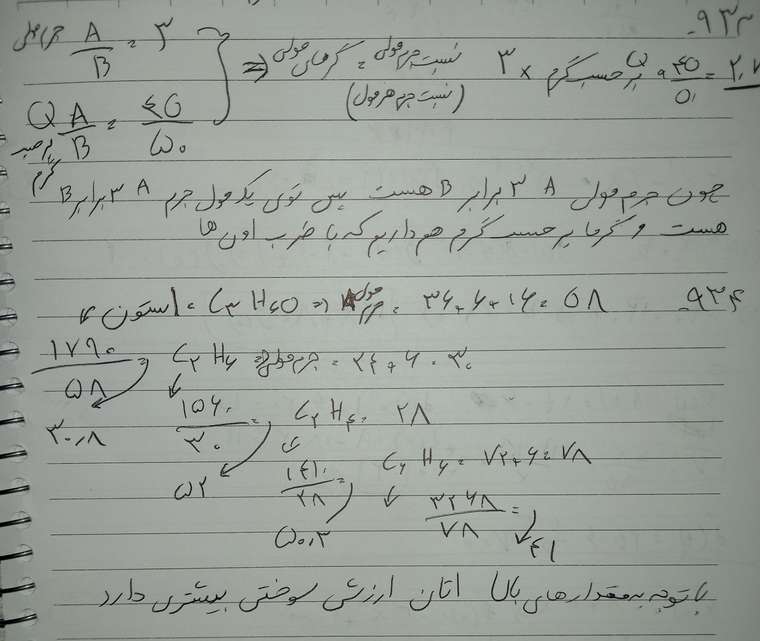 ۹۳۳-
جرم مولی A/B = ۳
Q A/B = ۴۵/۵۰ بر حسب گرم } ⇒ گرمای مولی = نسبت جرم مولی (نسبت جرم هر مول) ۳ × Q بر حسب گرم ۴۵/۵۰ = ۲,۷
چون جرم مولی A ۳ برابر B هست پس توی یک مول جرم A ۳ برابر B
هست و گرما بر حسب گرم هم داریم که با ضرب اون ها
۹۳۴- استون = C۳H۶O ⇒ جرم مولی = ۳۶+۶+۱۶=۵۸
۱۷۹۰/۵۸ = ۳۰,۸ C۲H۶ ⇒ جرم مولی = ۲۴+۶=۳۰
۱۵۶۰/۳۰ = ۵۲ C۲H۴ = ۲۸
۱۴۱۰/۲۸ = ۵۰,۳ C۶H۶ = ۷۲+۶=۷۸
۳۲۶۸/۷۸ = ۴۱
با توجه به مقدارهای بالا اتان ارزش سوختی بیشتری دارد